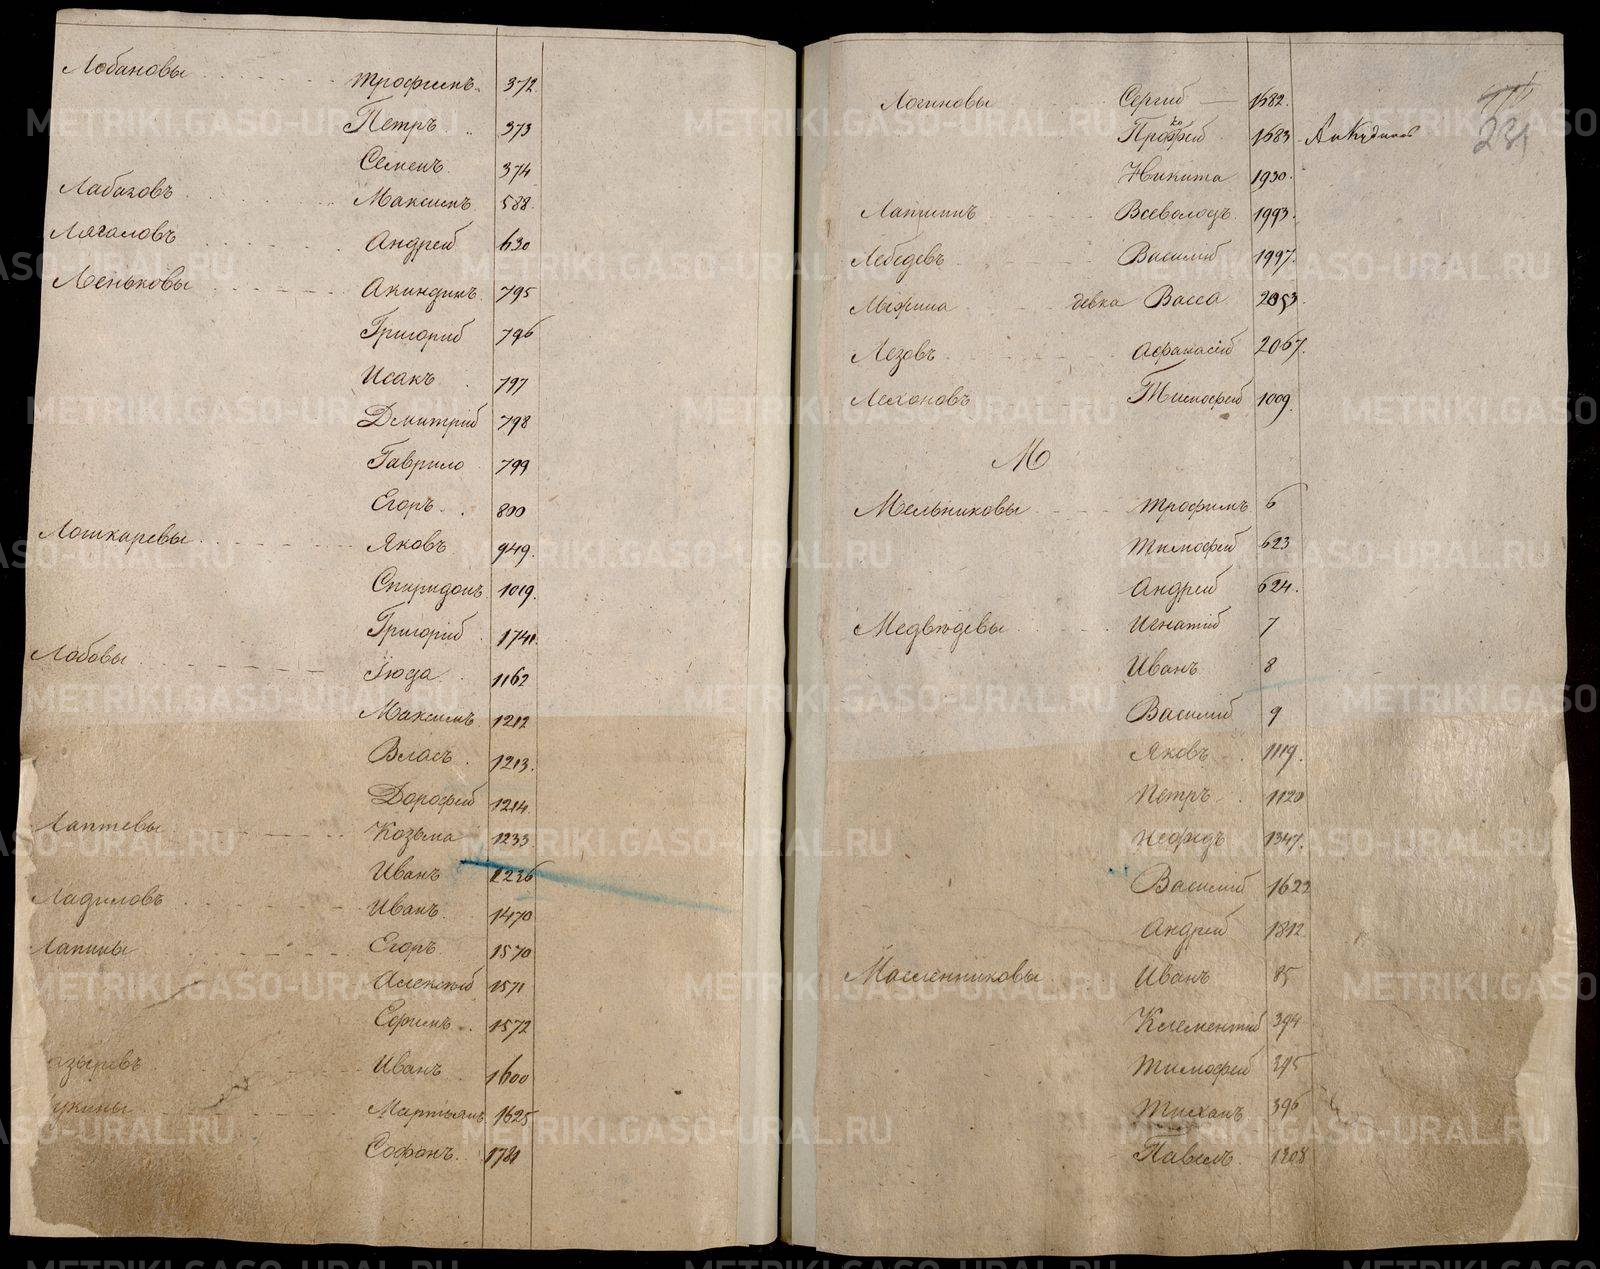 Лобановы Трофимъ 372
Петръ 373
Семенъ 374
Лабазовъ Максимъ 588
Лягаловъ Андрей 630
Леньковы Акиндинъ 795
Григорий 796
Исакъ 797
Дмитрій 798
Гаврило 799
Егоръ 800
Лошкаревы Яковъ 949
Спиридонъ 1019
Григорій 1741
Лобовы Іюда 1162
Максимъ 1212
Власъ 1213
Дорофей 1214
Лаптевы Козьма 1233
Иванъ 1236
Ладиловъ Иванъ 1470
Лапины Егоръ 1570
Алексѣй 1571
Ефимъ 1572
азыревъ Иванъ 1600
укины Мартынъ 1625
Софонъ 1781
23
Логиновы Сергѣй 1682
1683
Никита 1930
Лапшинъ Всеволодъ 1993
Лебедевъ Василій 1997
девка Васса 2053
Лезовъ Афанасій 2067
Лехоновъ Тимофей 1009
М
Мельниковы Трофимъ 6
Тимофей 623
Андрей 624
Медвѣдевы Игнатій 7
Иванъ 8
Василій 9
Яковъ 1119
Петръ 1120
Нефедъ 1347
Василій 1622
Андрей 1812
Масленниковы Иванъ 85
Клементий 394
Тимофей 395
Тихонъ 396
Павелъ 1308
METRIKI.GASO-URAL.RU